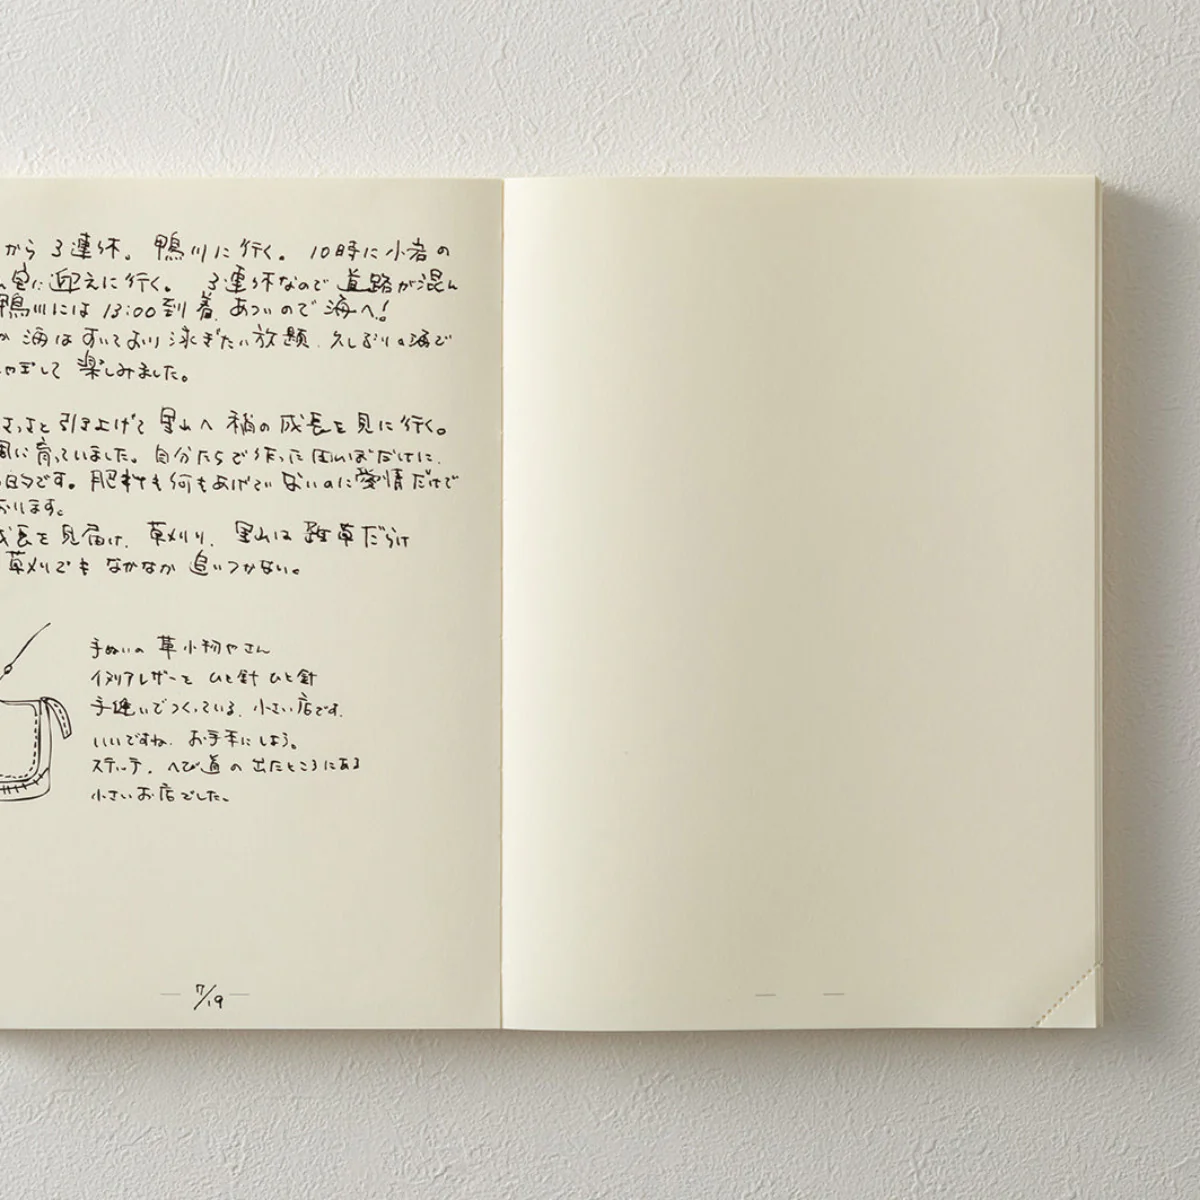 から 3連休。鴨川に行く。10時に小者の
に迎えに行く。3連休なので道路が混ん
鴨川には 13:00到着、あついので海へ!
海はすいており泳ぎたい放題、久しぶりの海で
して楽しみました。
さっさと引き上げて里山へ稲の成長を見に行く。
に育っていました。自分たちで作った田んぼだけに、
的です。肥料も何もあげていないのに愛情だけで
おります。
成長を見届け、草刈り、里山は雑草だらけ
草刈りでもなかなか追いつかない。
手ぬいの 革小物やさん
イタリアレザーを ひと針 ひと針
手縫いでつくっている、小さい店です。
いいですね、お手本にしよう。
ステッチ、へび道の出たところにある
小さいお店でした。
7/19